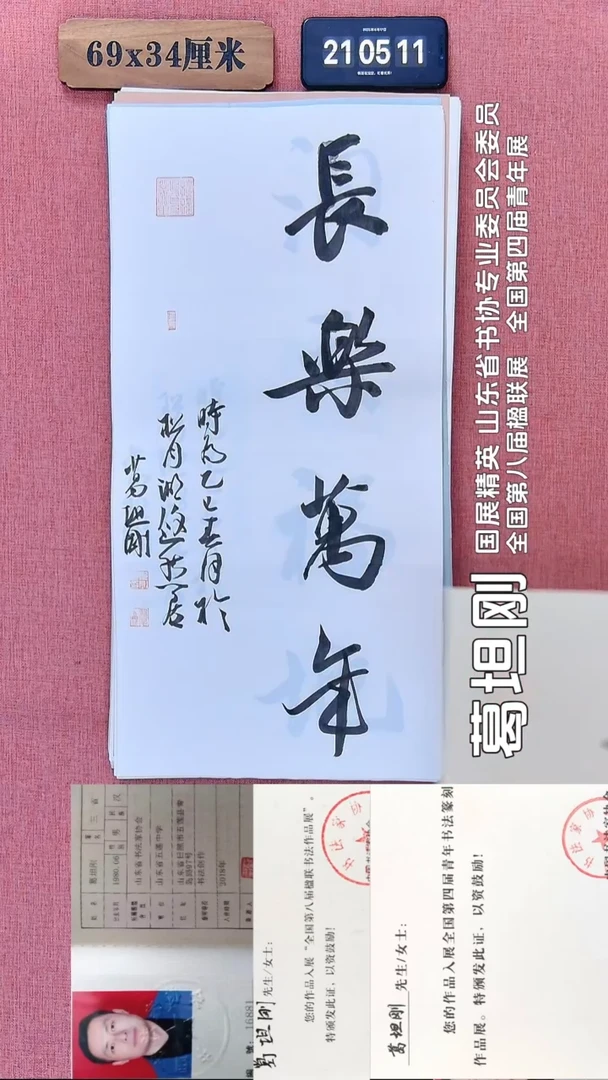 69x34厘米
21 05 11
長樂萬年
時為乙巳春月於
松月湖悠然居
葛坦剛
国展精英 山东省书协专业委员会委员
全国第八届楹联展 全国第四届青年展
葛坦刚
葛坦刚 先生/女士：
您的作品入展“全国第八届楹联书法作品展”。
特颁发此证，以资鼓励！
葛坦刚 先生/女士：
您的作品入展全国第四届青年书法篆刻
作品展。特颁发此证，以资鼓励！
山东省书法家协会